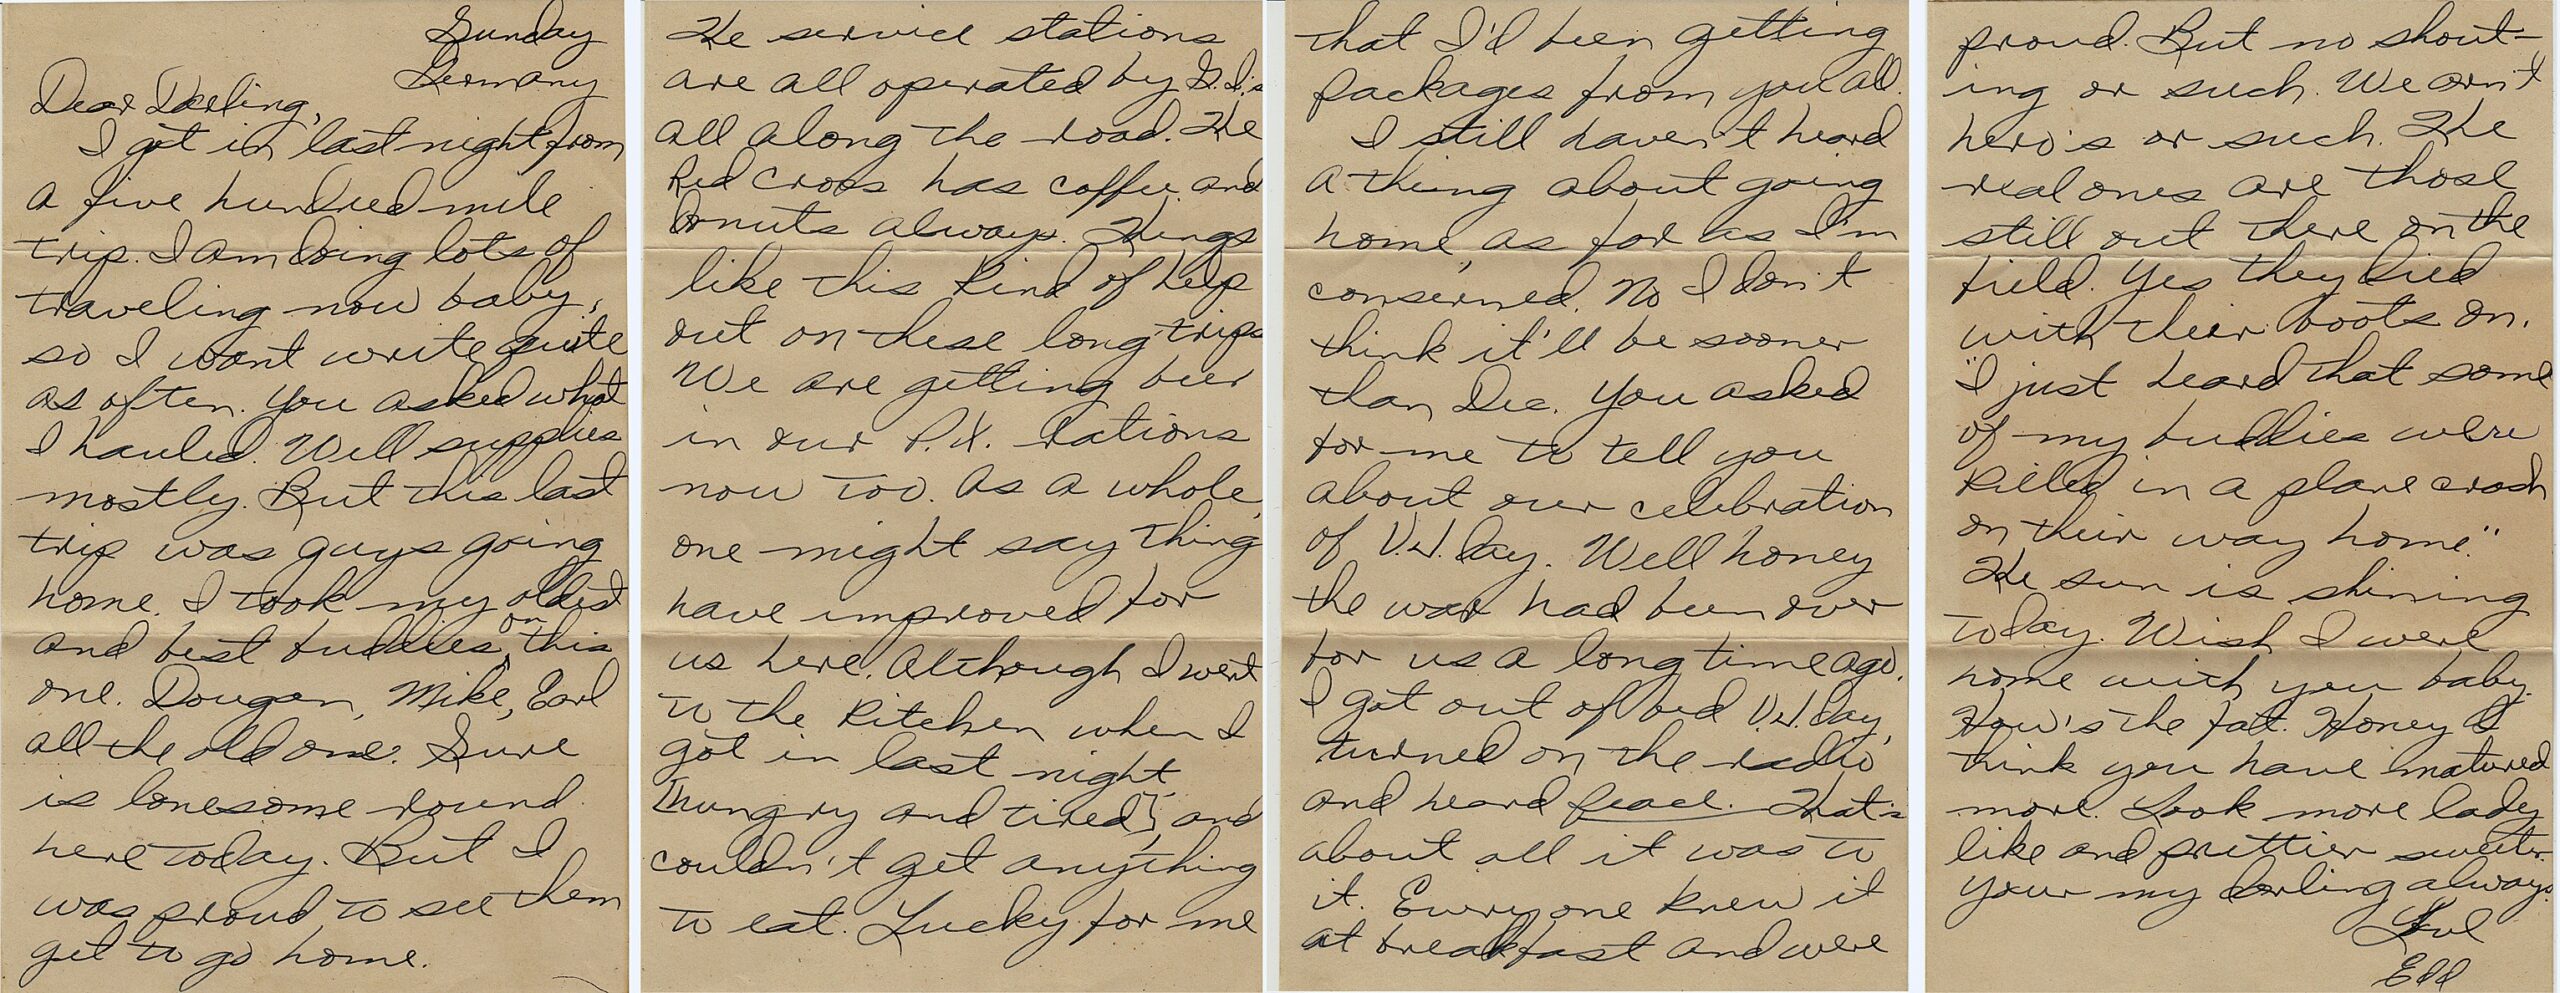 Sunday
Germany
Dear Darling,
I got in last night from
a five hundred mile
trip. I am doing lots of
traveling now baby,
so I wont write quite
as often. You asked what
I hauled. Well supplies
mostly. But this last
trip was guys going
home. I took my oldest
and best buddies on this
one. Dougan, Mike, Earl
all the old ones. Sure
is lonesome round
here today. But I
was proud to see them
get to go home.
The service stations
are all operated by G.I.'s
all along the road. The
Red Cross has coffee and
donuts always. Things
like this kind of help
out on these long trips
We are getting beer
in our P.X. rations
now too. As a whole,
one might say thing
have improved for
us here. Although I went
to the kitchen when I
got in last night
[hungry and tired] and
couldn't get anything
to eat. Lucky for me
that I'd been getting
packages from you all.
I still haven't heard
a thing about going
home, as far as I'm
conserned. No I don't
think it'll be sooner
than Dec. You asked
for me to tell you
about our celebration
of V.J. day. Well honey
the war had been over
for us a long time ago.
I got out of bed V.J. day,
turned on the radio
and heard peace. That's
about all it was to
it. Everyone knew it
at breakfast and were
proud. But no shout-
ing or such. We arn't
hero's or such. The
real ones are those
still out there on the
field. Yes they died
with their boots on.
"I just heard that some
of my buddies were
killed in a plane crash
on their way home."
The sun is shining
today. Wish I were
home with you baby.
How's the fat. Honey I
think you have matured
more. Look more lady
like and prettier sweeter.
your my darling always.
Love
Edd